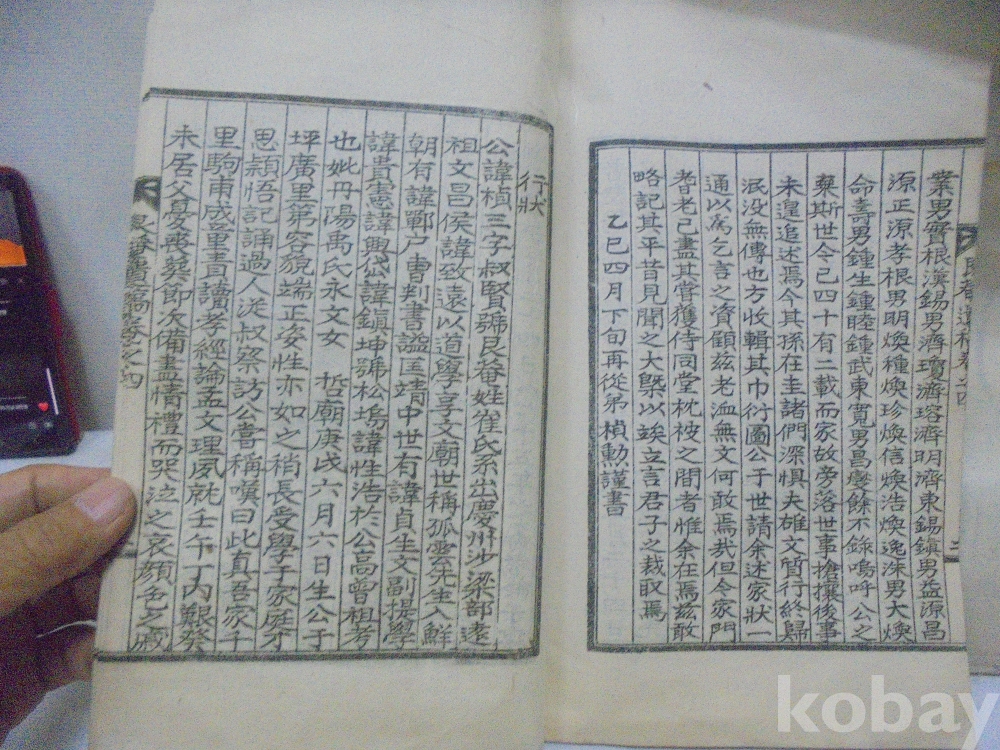 業男實根漢錫男濟瓊濟瑢濟明濟東錫鎭男益源昌
源正源孝根男明煥種煥珍煥信煥浩煥逸洙男大煥
命壽男鍾生鍾睦鍾武東寬男昌燮餘不錄嗚呼公之
棄斯世今已四十有二載而家故旁落世事搶攘後事
未遑追述焉今其孫在圭諸們深惧夫碓文質行終歸
泯没無傳也方收輯其巾衍圖公于世請余述家狀一
通以爲乞言之資顧茲老洫無文何敢焉㢤但今家門
耆老已盡其嘗獲侍同堂枕被之間者惟余在焉茲敢
略記其平昔見聞之大槩以竢立言君子之裁取焉
乙巳四月下旬再從弟楨勳謹書
行狀
公諱楨三字叔賢號艮菴姓崔氏系出慶州沙梁部遠
祖文昌侯諱致遠以道學享文廟世稱孤雲先生入鮮
朝有諱鄲戶曺判書謚匡靖中世有諱貞生文副提學
諱貴憲諱興岱諱鎭坤號松塢諱性浩於公高曾祖考
也妣丹陽禹氏永文女 哲廟庚戌六月六日生公于
坪廣里第容貌端正姿性亦如之稍長受學于家庭才
思穎悟記誦過人從叔寀訪公嘗稱嘆曰此真吾家千
里駒甫成童書讀孝經論孟文理夙就壬午丁內艱癸
未居父憂喪葬節欠備盡情禮而哭泣之哀顔色之戚
kobay